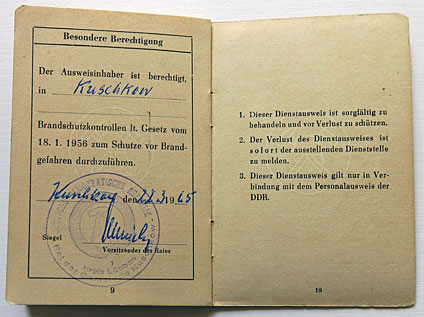 Besondere Berechtigung
Der Ausweisinhaber ist berechtigt,
in Kuschkow
Brandschutzkontrollen lt. Gesetz vom
18. 1. 1956 zum Schutze vor Brand-
gefahren durchzuführen.
Kuschkow, den 19 65
Siegel
Vorsitzender des Rates
Kreis Lübben
9
1. Dieser Dienstausweis ist sorgfältig zu
behandeln und vor Verlust zu schützen.
2. Der Verlust des Dienstausweises ist
sofort der ausstellenden Dienststelle
zu melden.
3. Dieser Dienstausweis gilt nur in Ver-
bindung mit dem Personalausweis der
DDR.
10